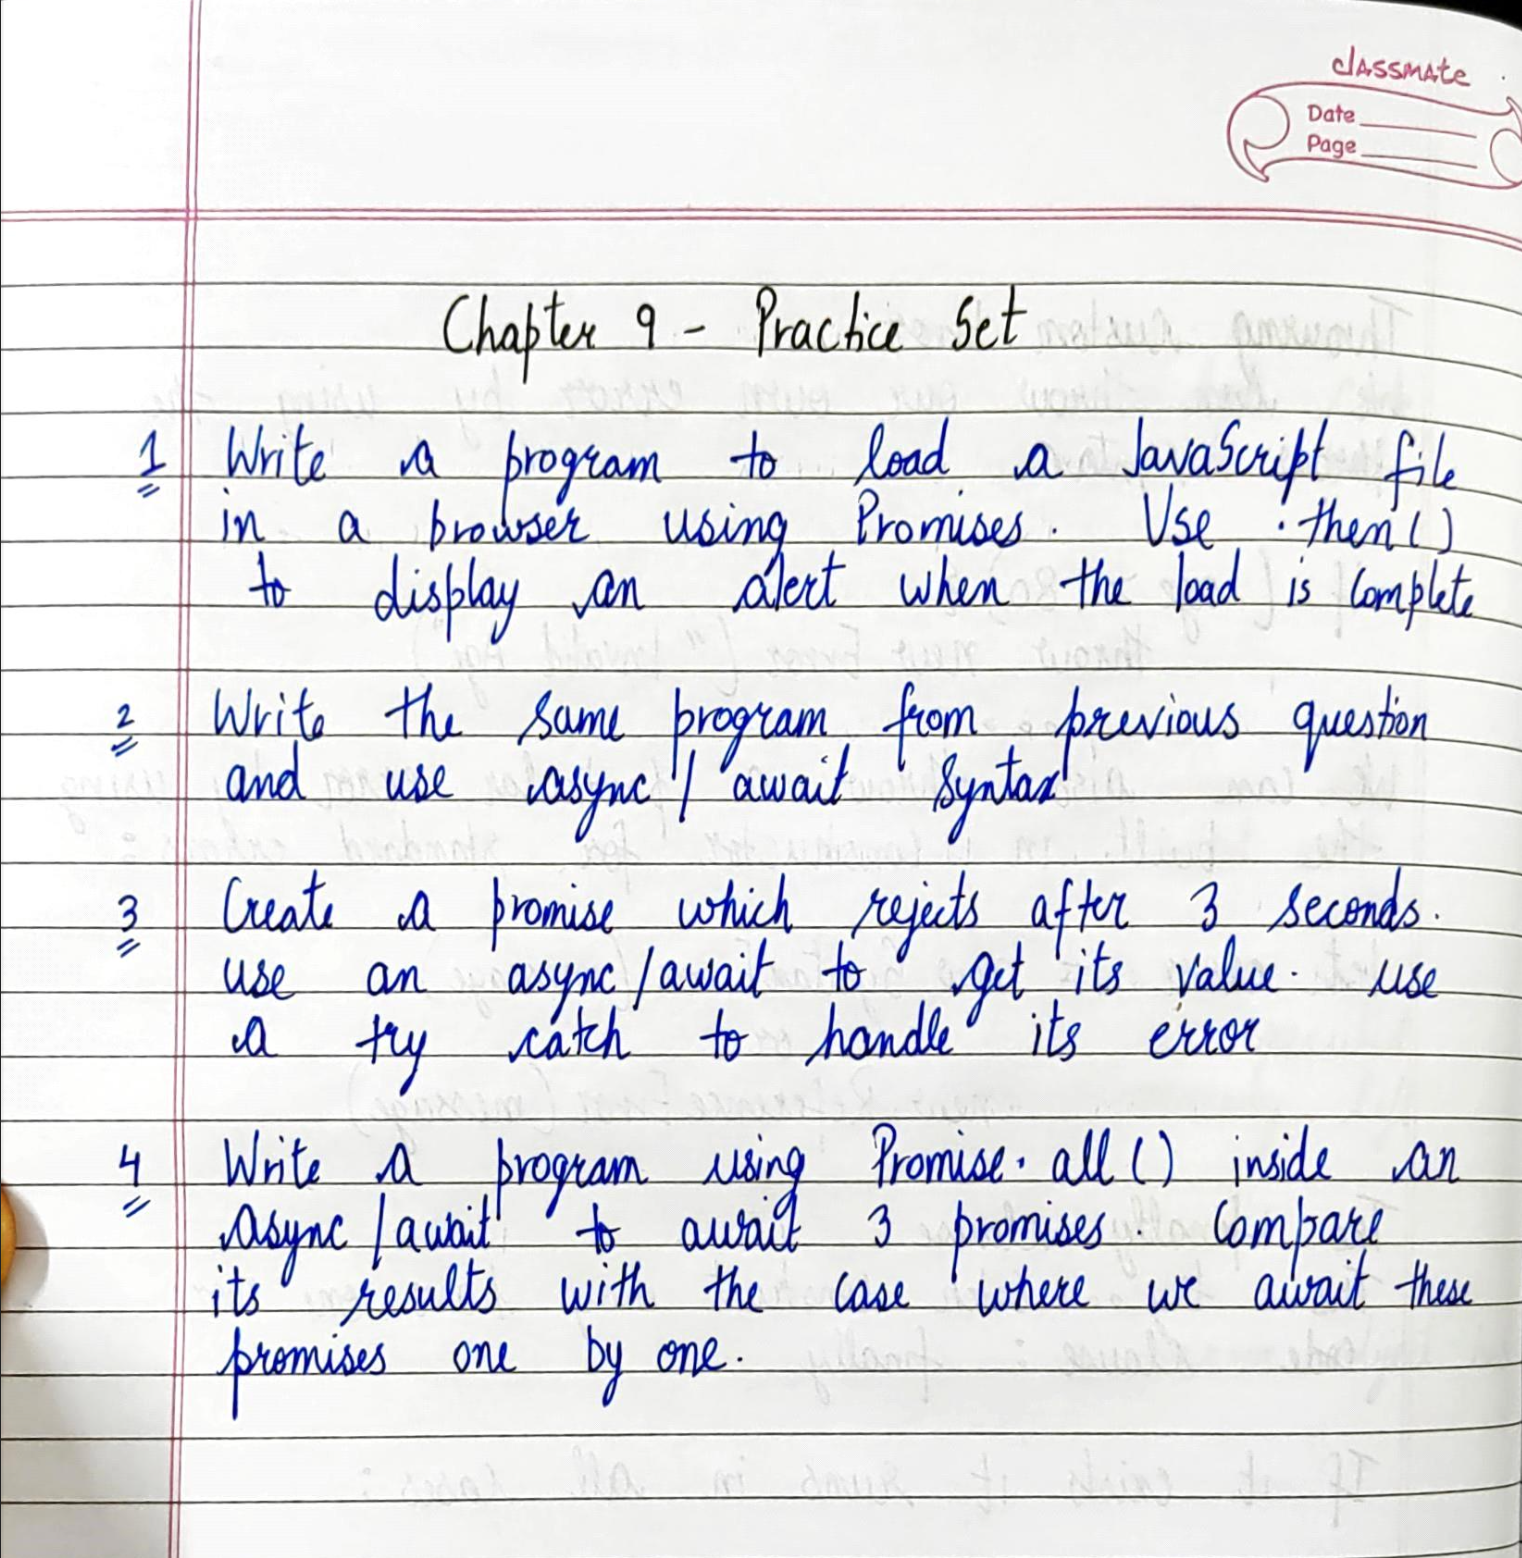 classmate
Date
Page
Chapter 9 - Practice Set
1 Write a program to load a JavaScript file
in a browser using Promises. Use .then()
to display an alert when the load is complete
2 Write the same program from previous question
and use async / await syntax
3 Create a promise which rejects after 3 seconds.
use an async / await to get its value. use
a try catch to handle its error
4 Write a program using Promise.all() inside an
async / await to await 3 promises. Compare
its results with the case where we await these
promises one by one.